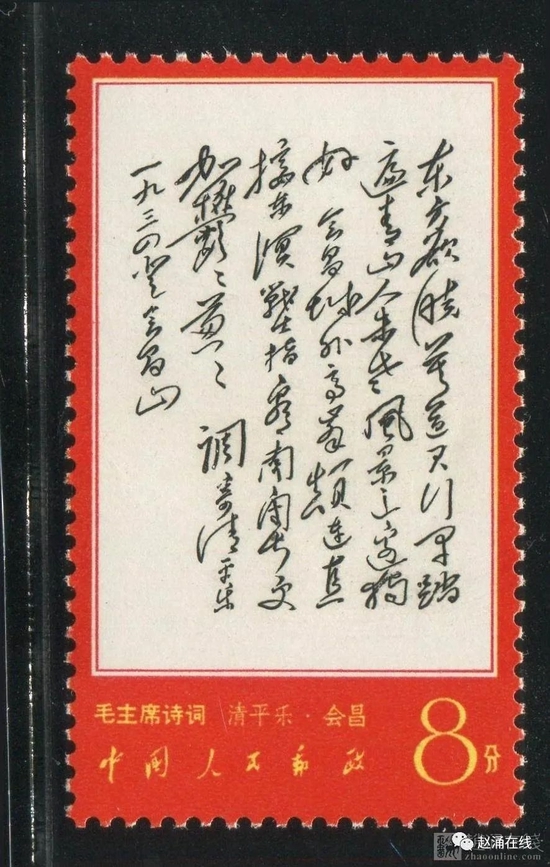 东方欲晓莫道君行早踏
遍青山人未老風景这边独
好 会昌城外高峯颠连直
接东溟戰士指看南粤更
加欝〻葱〻 調寄清平乐
一九三四登会昌山
毛主席诗词 清平乐·会昌
中国人民邮政
8分
赵涌在线
zhaoonline.com